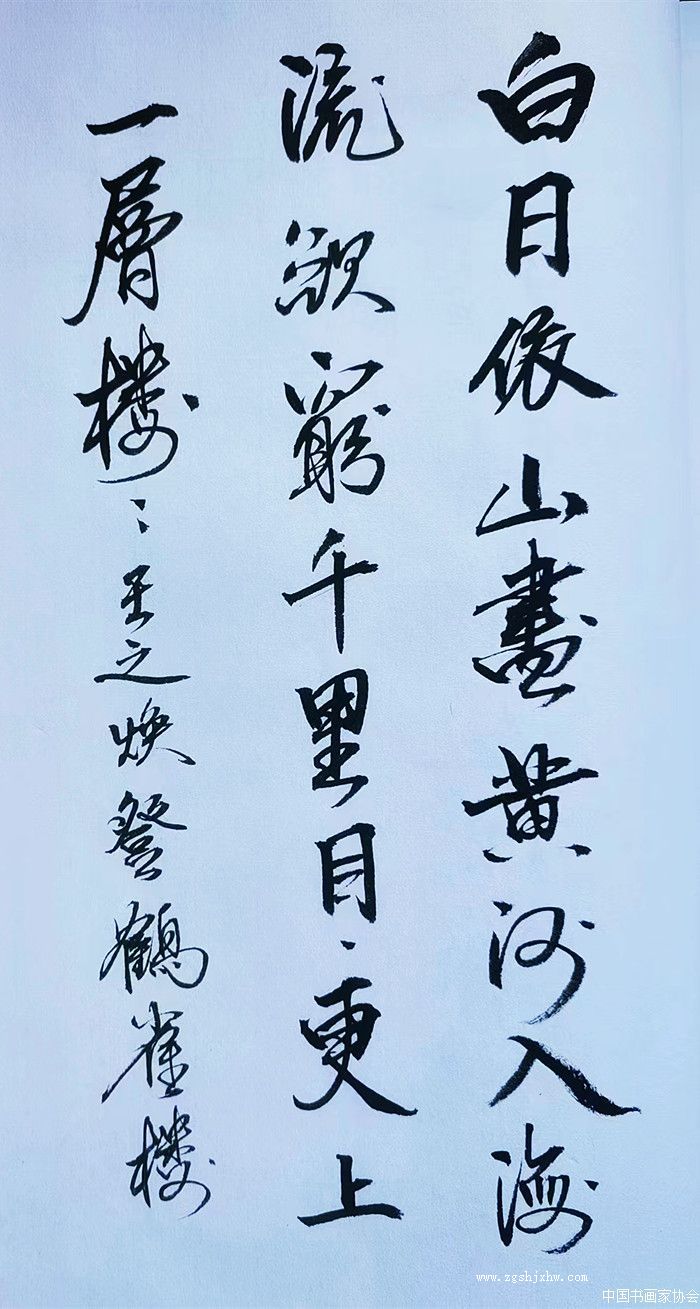 白日依山盡黄河入海
流欲窮千里目更上
一層樓王之焕登鶴雀樓
www.zgshjxhw.com
中国书画家协会